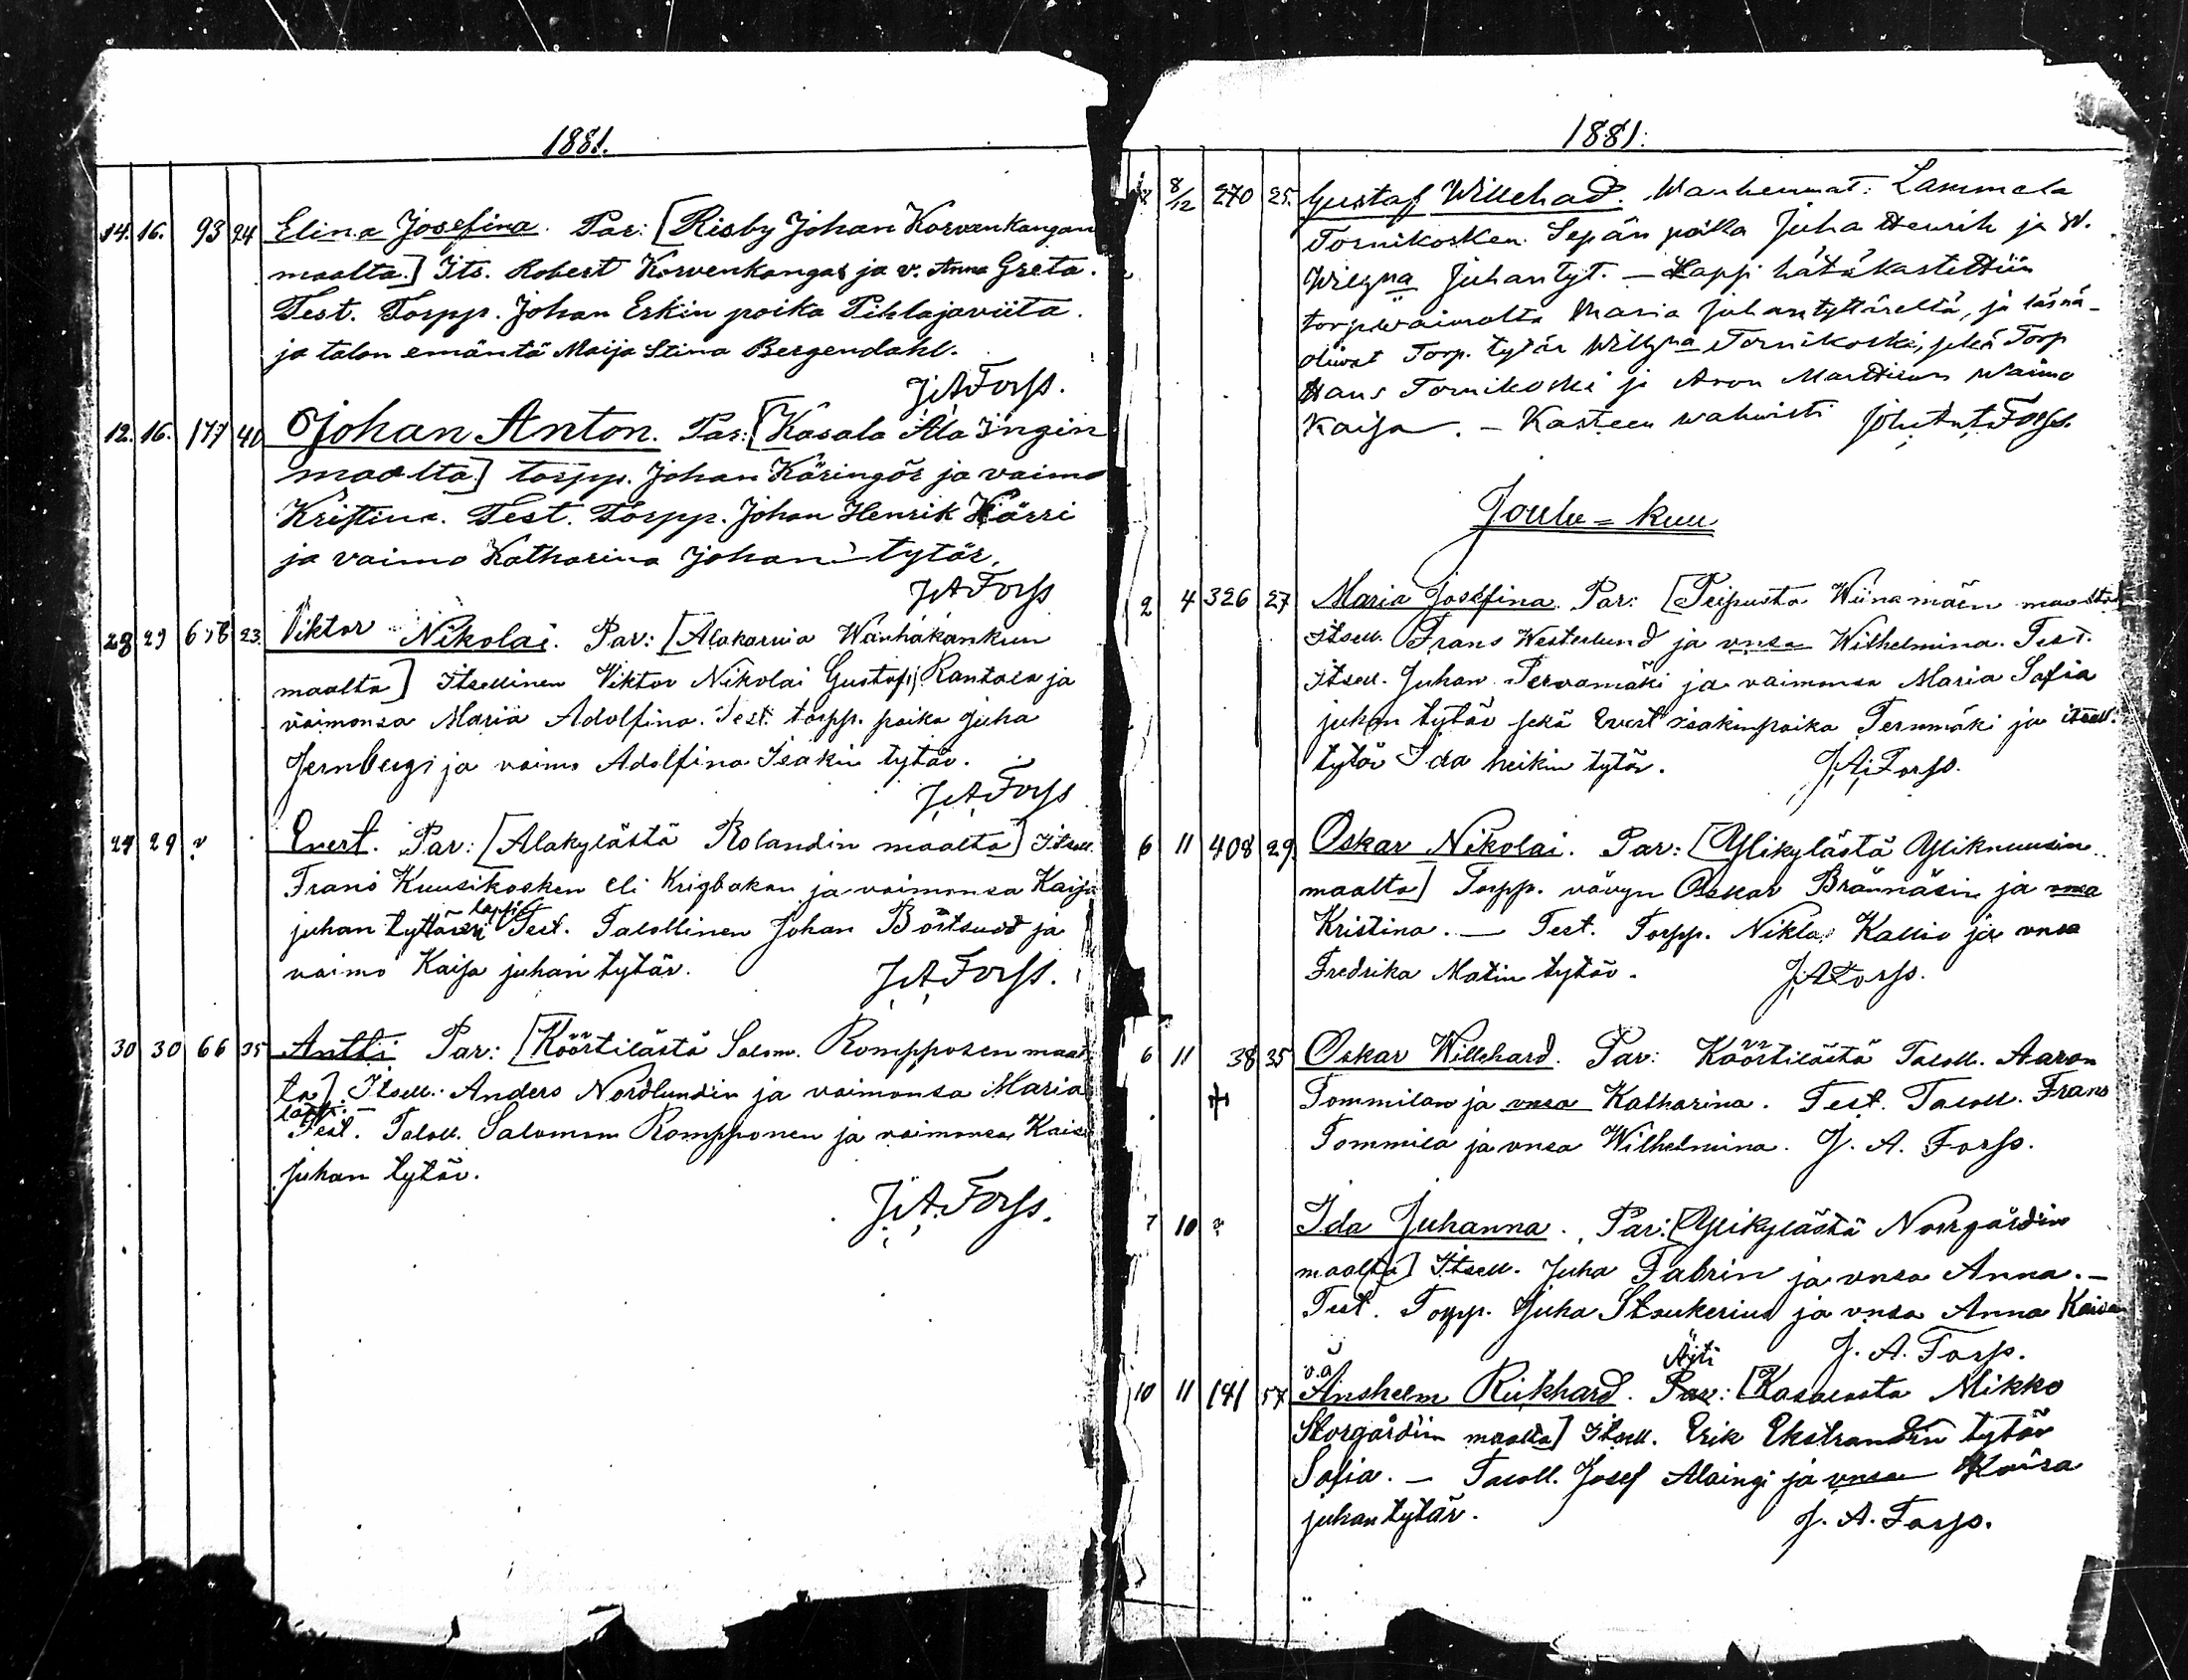 1881.
14. 16. 93 24 Elina Josefina. Par: [Risby Johan Korvenkangan
maalta.] Its. Robert Korvenkangas ja v. Anna Greta.
Test. Torpp. Johan Erkin poika Pihlajaviita.
ja talon emäntä Maija Stina Bergendahl.
J.A.Forss.
12. 16. 177 40 Johan Anton. Par: [Kasala Ala Ingin
maalta] torpp. Johan Käringör ja vaimo
Kristina. Test. Torpp. Johan Henrik Kärri
ja vaimo Katharina Johan tytär.
J.A.Forss
28 29 23. Viktor Nikolai. Par: [Alakarvia Wanhakankun
maalta] Itsellinen Viktor Nikolai Gustafs Rantala ja
vaimonsa Maria Adolfina. Test. torpp. poika Juha
Jernbergi ja vaimo Adolfina Isakin tytär.
J.A.Forss
29 29 Evert. Par: [Alakylästä Rolandin maalta] Itsell.
Frans Kuusikosken eli Krigbakan ja vaimonsa Kaija
juhan tyttären lapsi Test. Talollinen Johan ja
vaimo Kaija juhan tytär. J.A.Forss.
30 30 66 35 Antti Par: [Köörtilästä Salom. Rompposen maal
ta] Itsell. Anders Nordlundin ja vaimonsa Maria
laps.
Test. Taloll. Salomon Rompponen ja vaimonsa Kaisa
Juhan tytär.
J.A.Forss.
1881.
8/12 270 25. Gustaf Willehad. Wanhemmat: Lammela
Tornikosken Sepän poika Juha Henrik ja W.
Wilgma Juhantyt. — Lapsi hätäkastettiin
torp.waimolta Maria Juhantyttäreltä, ja läsnä-
oliwat Torp. tytär Willgma Tornikoski, sekä Torp
Hans Tornikoski ja Aron Marttisen waimo
Kaisa. — Kasteen wahwisti Joh. Ant. Forss.
Joulu=kuu
2 4 326 27 Maria Josefina. Par: [Peipusta Wiinamäen maalta]
Itsell. Frans Westerlund ja vnsa Wilhelmina. Test.
Itsell. Juhan Pervamäki ja vaimonsa Maria Sofia
juhan tytär sekä Evert Isakinpoika Ternmäki ja itsell.
tytär Ida heikin tytär. J.A.Forss.
6 11 408 29. Oskar Nikolai. Par: [Ylikylästä Yliknuusin
maalta] Torpp. vävyn Oskar Brännäsin ja vnsa
Kristina. — Test. Torpp. Nikla Kallio ja vnsa
Fredrika Matin tytär. J.A.Forss.
6 11 38 35 Oskar Willehard. Par: Köörtilästä Taloll. Aaron
Tommilan ja vnsa Katharina. Test. Taloll. Frans
Tommila ja vnsa Wilhelmina. J. A. Forss.
7 10 Ida Juhanna. Par: [Ylikylästä Norrgårdin
maalta] Itsell. Juha Fabrin ja vnsa Anna. —
Test. Torpp. Juha ja vnsa Anna Kaisa
J. A. Forss.
v.ä. Äiti
10 11 141 57 Anshelm Rickhard. Par: [Kasalasta Mikko
Storgårdin maalta] Itsell. Erik Ekstrandin tytär
Sofia. — Taloll. Josef Alaingi ja vnsa Kaisa
juhan tytär. J. A. Forss.